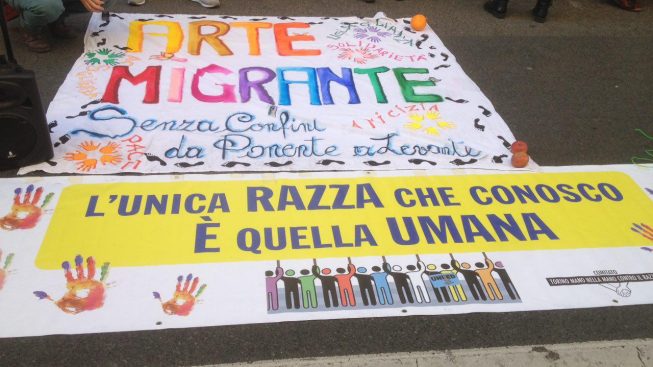 ARTE
SOLIDARIETÀ
MIGRANTE
AMICIZIA
Senza Confini
PACE
da Ponente a Levante
L'UNICA RAZZA CHE CONOSCO
È QUELLA UMANA
COMITATO
TORINO MANO NELLA MANO CONTRO IL RAZ